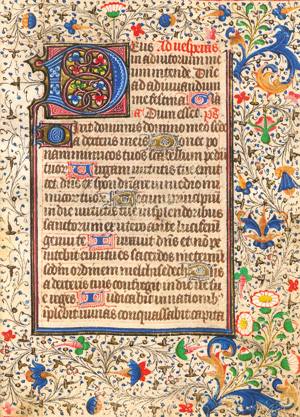 Deus Ad vesperas
in adiutorium m
eum intende Dne
ad adiuvandum
me festina Gla
a Dum esset ps
Dixit dominus domino meo sede
a dextris meis Donec po
nam inimicos tuos scabellum pedum
tuorum Virgam virtutis tue emit
tet dns ex syon dominare in medio in
imicorum tuorum Tecum principium
in die virtutis tue in splendoribus
sanctorum ex utero ante luciferum
genui te Iuravit dns et non pe
nitebit eum tu es sacerdos in eternum
secundum ordinem melchisedech Dns
a dextris tuis confregit in die ir
e reges Iudicabit in nationib
implebit ruinas conquassabit capita